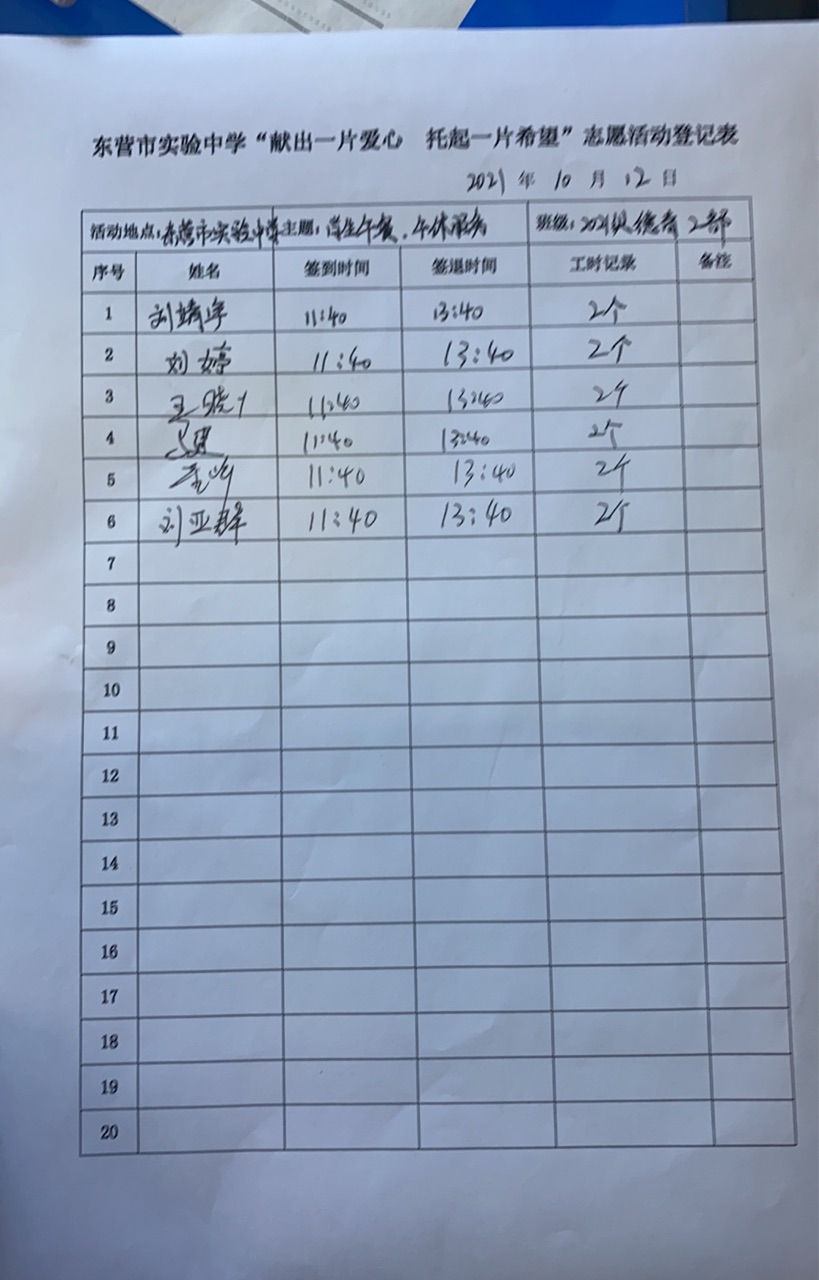 东营市实验中学“献出一片爱心 托起一片希望”志愿活动登记表
2021 年 10 月 12 日
活动地点:东营市实验中学 主题:学生午餐、午休服务 班级:2021级德育2部
序号 姓名 签到时间 签退时间 工时记录 备注
1 刘靖宇 11:40 13:40 2个
2 刘婷 11:40 13:40 2个
3 王晓 11:40 13:40 2个
4 11:40 13:40 2个
5 11:40 13:40 2个
6 刘亚群 11:40 13:40 2个
7
8
9
10
11
12
13
14
15
16
17
18
19
20